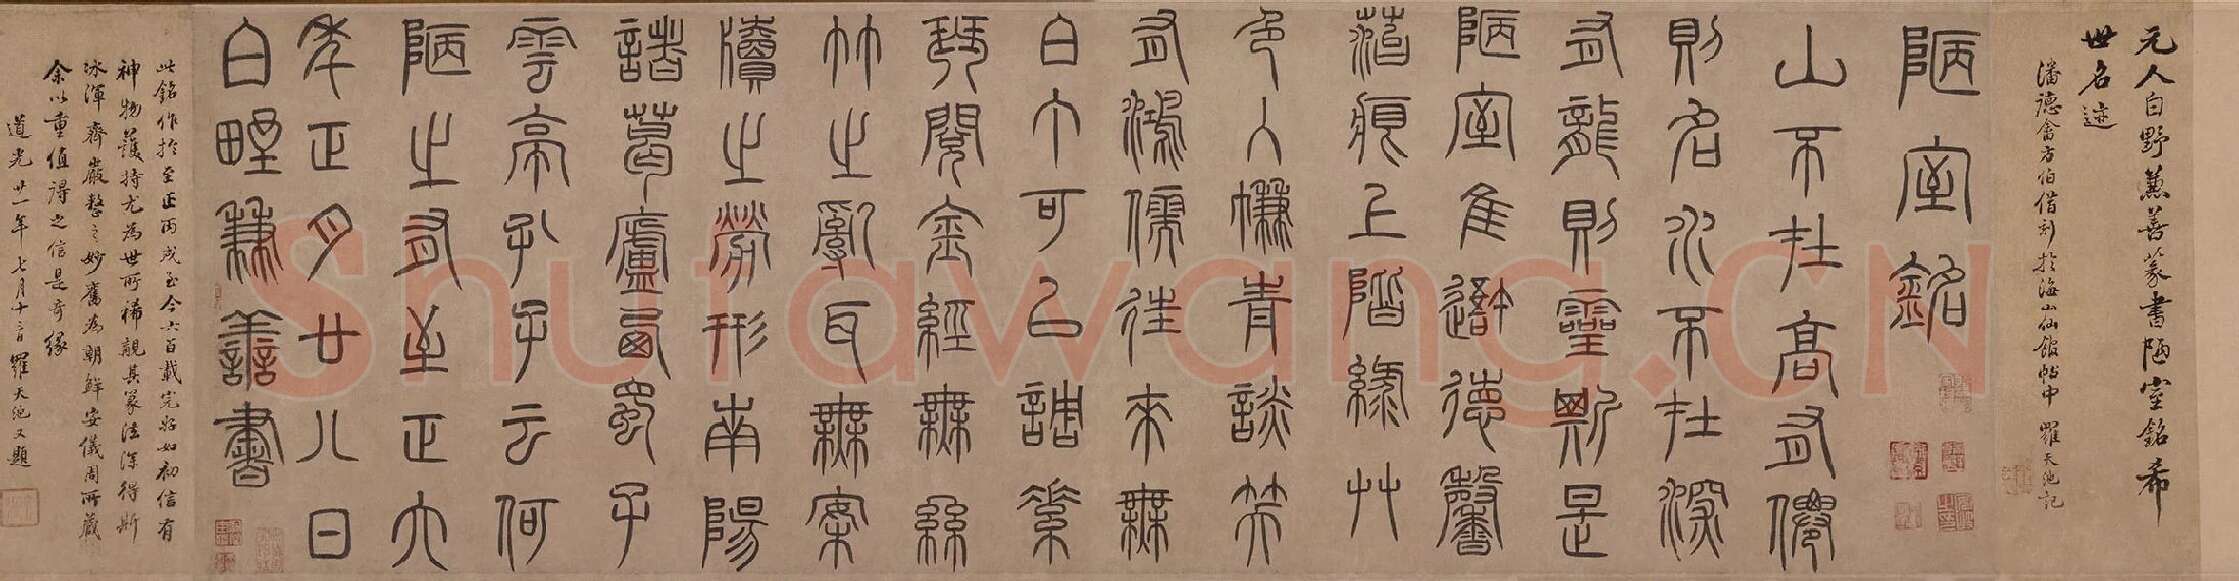 元人白野兼善篆書陋室銘希
世名迹
潘德畬方伯借刻於海山仙館帖中 羅天池記
陋室銘
山不在高有僊
則名水不在深
有龍則靈斯是
陋室隹吾德馨
苔痕上階綠艸
色入簾青談笑
有鴻儒往來無
白丁可以調素
琴閱金經無絲
竹之亂耳無案
牘之勞形南陽
諸葛廬西蜀子
雲亭孔子云何
陋之有至正六
年正月廿八日
白野兼善書
此銘作於至正丙戌至今六百載完好如初信有
神物護持尤為世所稀覯其篆法深得斯
冰渾齊嚴整之妙舊為朝鮮安儀周所藏
余以重值得之信是奇緣
道光廿一年七月十二日羅天池又題
Shufawang.CN